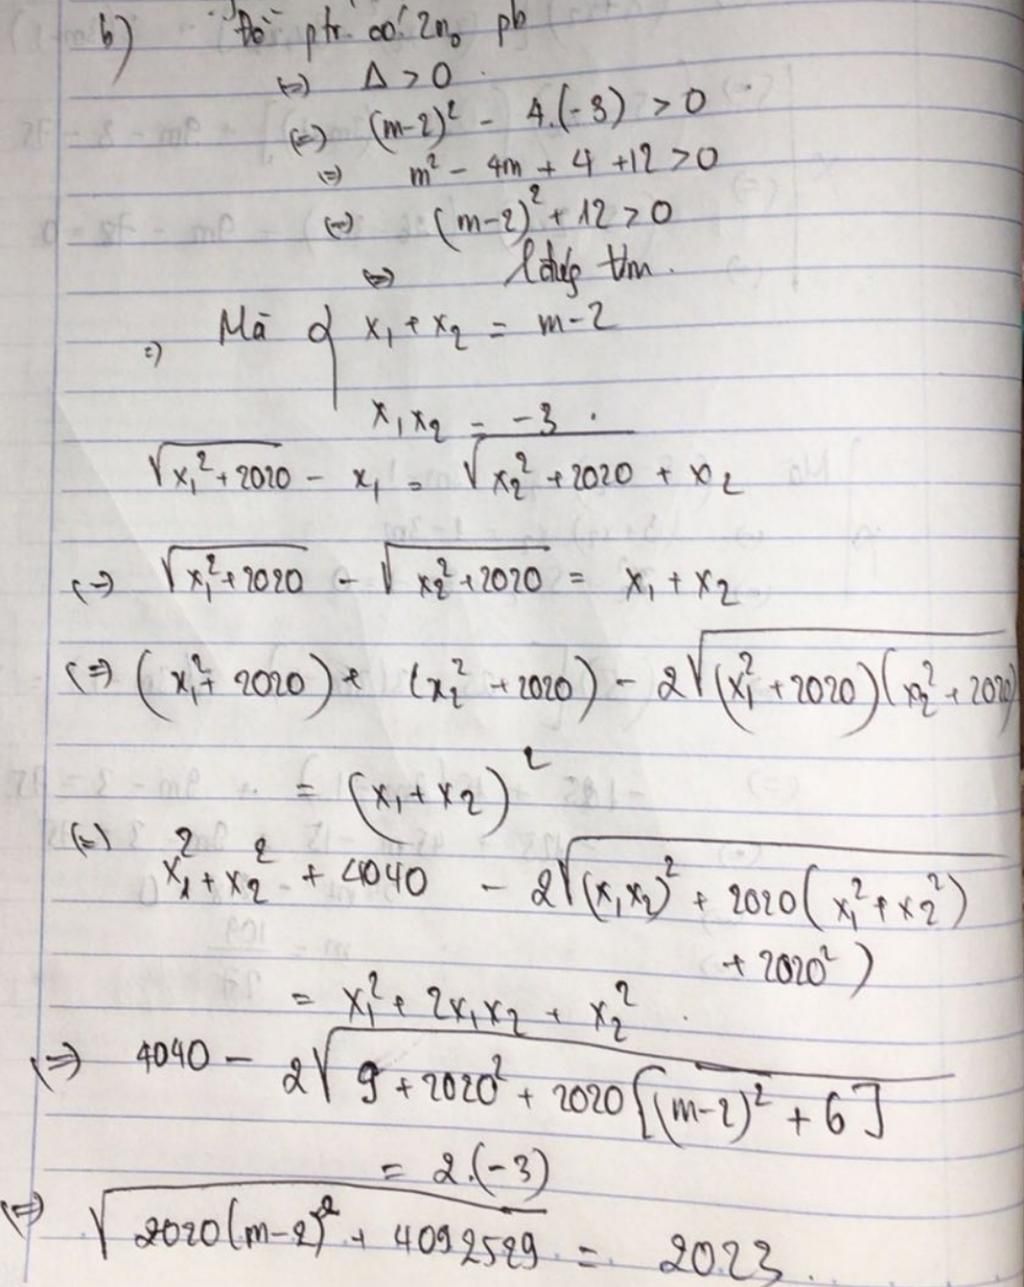 b) Để ptr có 2no pb
(=) Δ > 0
(=) (m-2)² - 4.(-3) > 0
(=) m² - 4m + 4 + 12 > 0
(=) (m-2)² + 12 > 0
(=) đúng ∀m.
=) Mà { x₁ + x₂ = m-2
x₁x₂ = -3.
√(x₁² + 2020) - x₁ = √(x₂² + 2020) + x₂
(=) √(x₁² + 2020) - √(x₂² + 2020) = x₁ + x₂
(=) (x₁² + 2020) + (x₂² + 2020) - 2√(x₁² + 2020)(x₂² + 2020)
= (x₁ + x₂)²
(=) x₁² + x₂² + 4040 - 2√(x₁x₂)² + 2020(x₁² + x₂²)
+ 2020²)
= x₁² + 2x₁x₂ + x₂².
(=) 4040 - 2√9 + 2020² + 2020[(m-2)² + 6]
= 2.(-3)
(=) √2020(m-2)² + 4092529 = 2023.